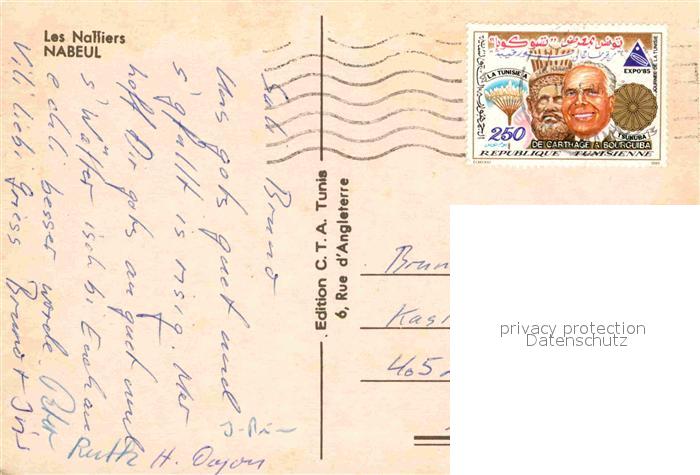 Les Nattiers
NABEUL
Salü Bruno
Uns gohts guet und
s'gfallt is risig. Mir
hoffe Dir gohts au guet und
s'Wätter isch bi Euch au
e chli besser worde.
Vili liebi Grüess Bruno + Iris
Peter
Ruth
H. Oppon
Edition C.T.A. Tunis
6, Rue d'Angleterre
تونس بمعرض تسوكوبا
EXPO'85
JOURNEE DE LA TUNISIE
LA TUNISIE A
TSUKUBA
250
DE CARTHAGE A BOURGUIBA
REPUBLIQUE TUNISIENNE
Brun
405
privacy protection
Datenschutz